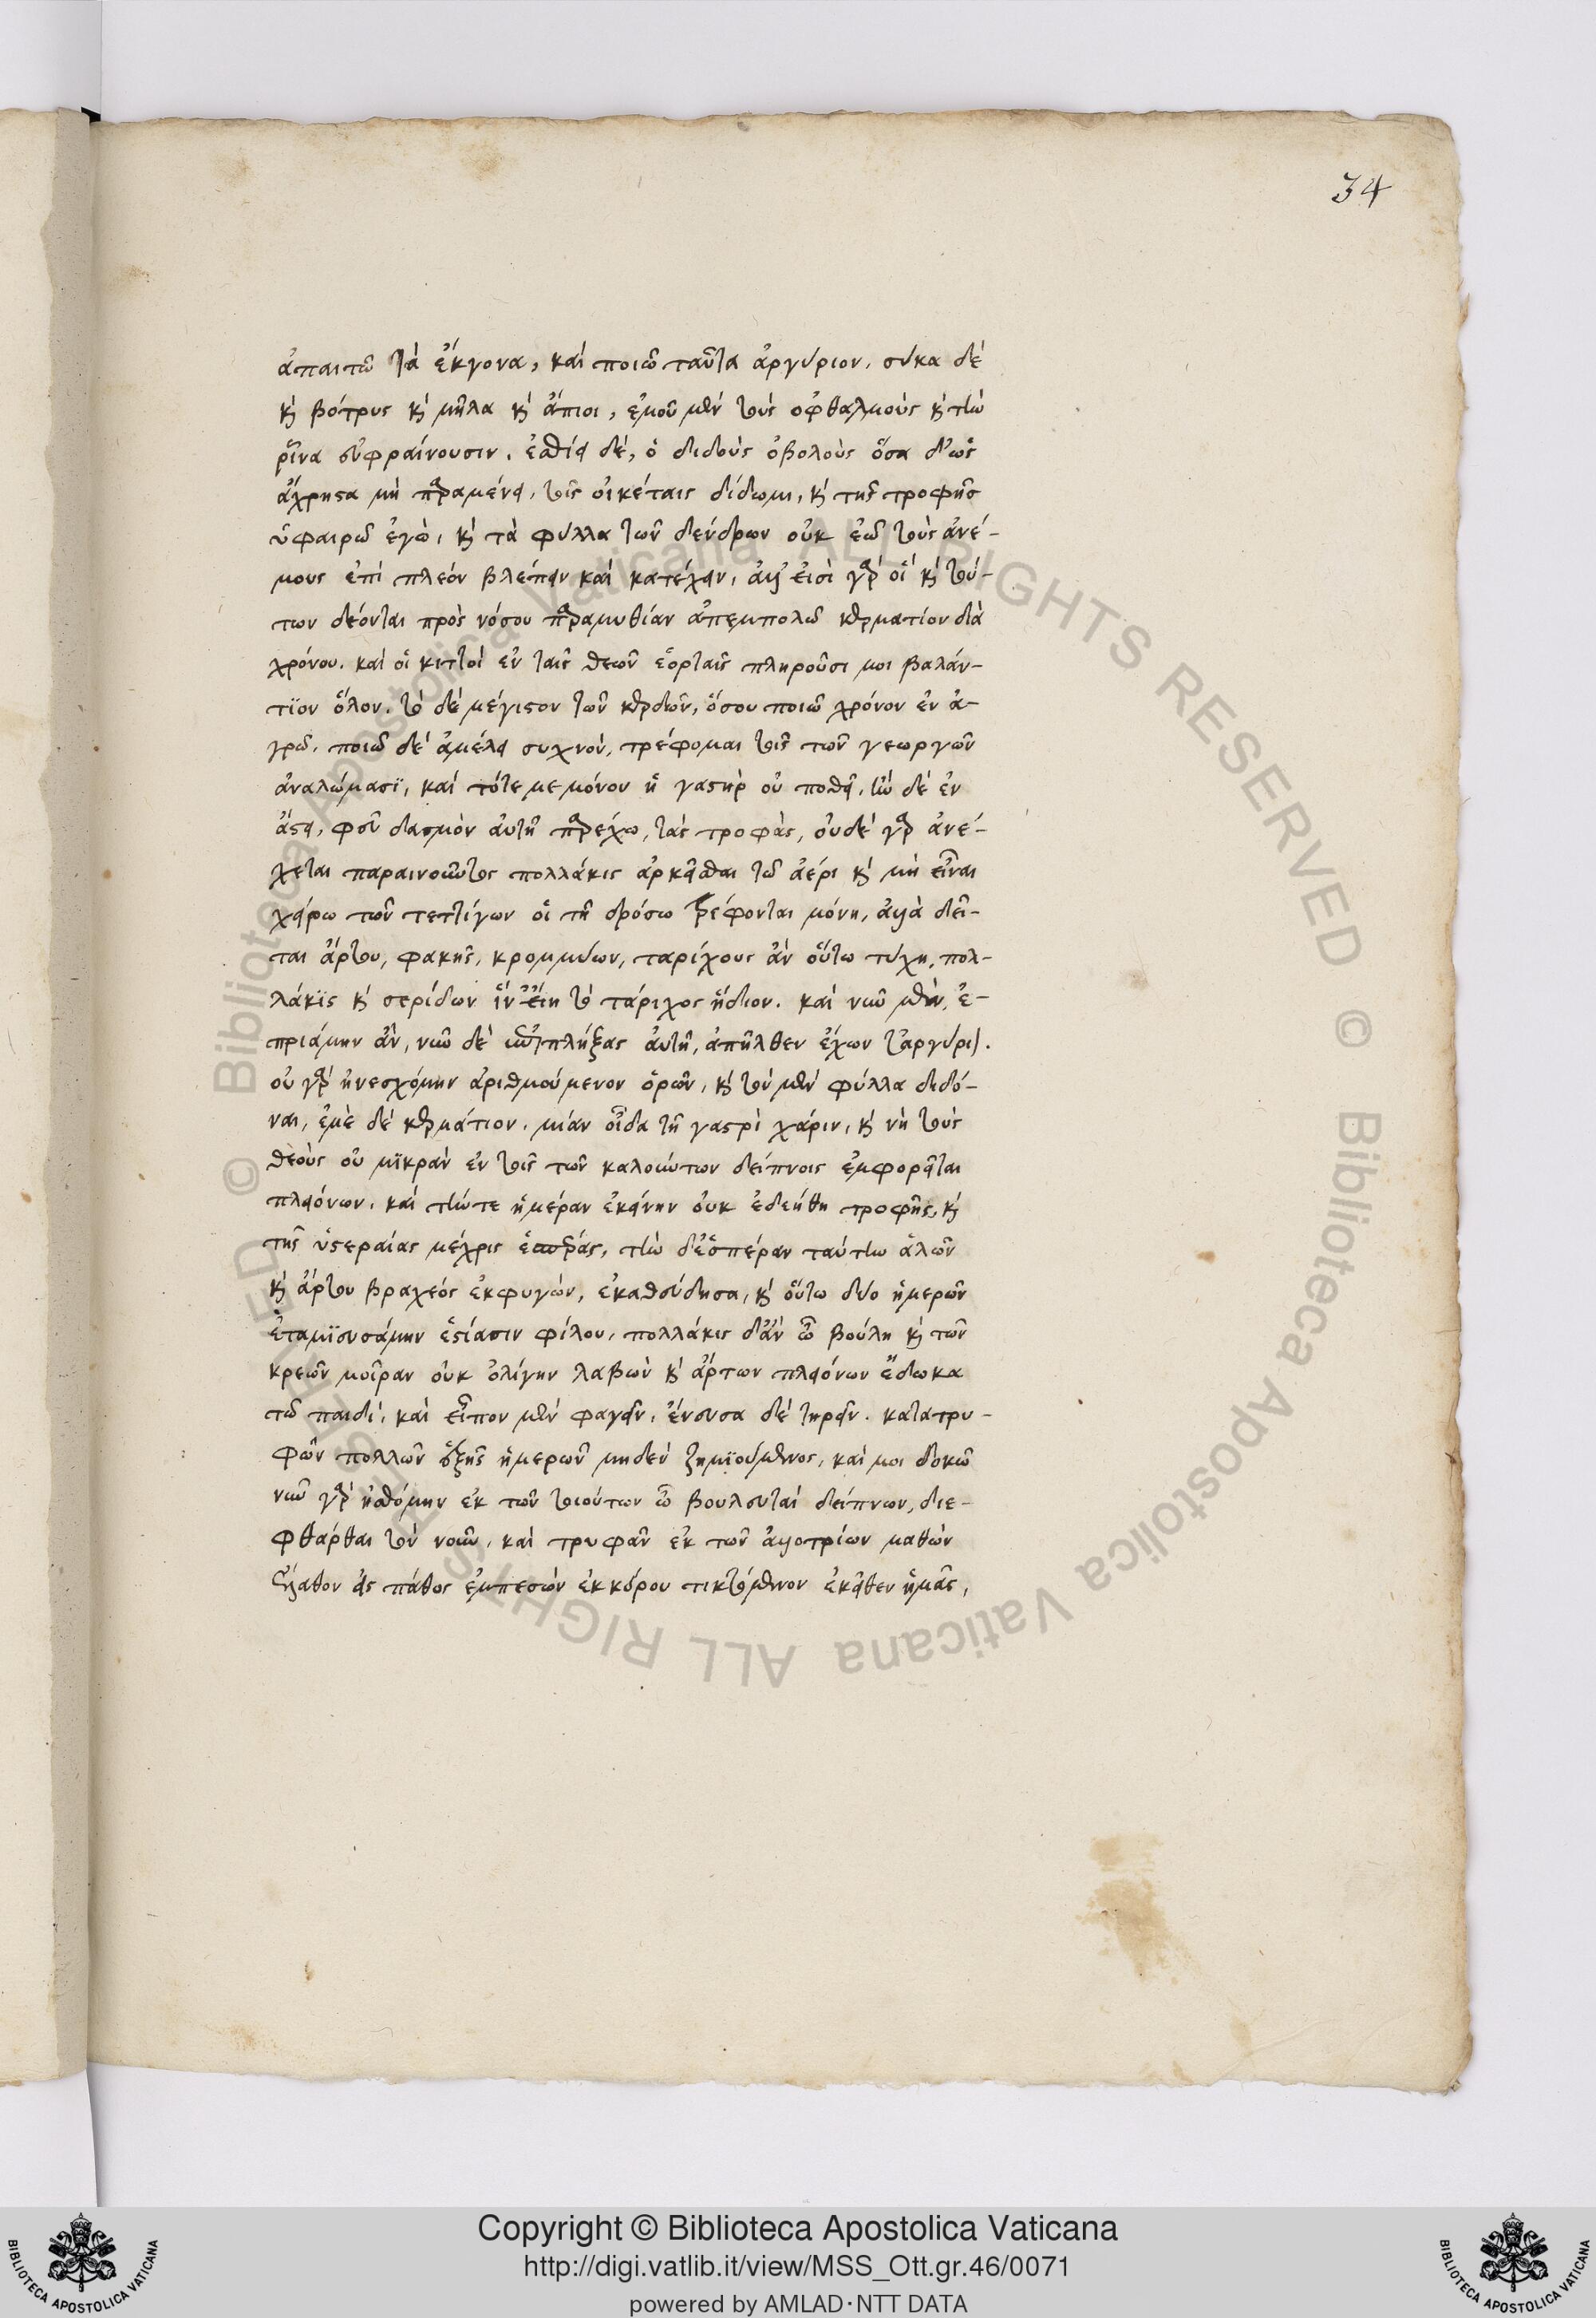 34
ἀπαιτῶ τὰ ἔκγονα, καὶ ποιῶ ταῦτα ἀργύριον. σύκα δὲ
κὶ βότρυς κὶ μῆλα κὶ ἄπιοι, ἐμοῦ μὲν τοὺς ὀφθαλμοὺς κὶ τὴν
ῥῖνα εὐφραίνουσιν. ἐσθίει δὲ, ὁ διδοὺς ὀβολοὺς ὅσα δ' ὡς
ἄχρηστα μὴ παραμένει, τοῖς οἰκέταις δίδωμι, κὶ τῆς τροφῆς
ὑφαιρῶ ἐγὼ, κὶ τὰ φύλλα τῶν δένδρων οὐκ ἐῶ τοὺς ἀνέ-
μους ἐπὶ πλεόν βλέπειν καὶ κατέχειν, ἀλλ' εἰσὶ γὰρ οἳ κὶ τού-
των δέονται πρὸς νόσου παραμυθίαν ἀπεμπολῶ κερματίον διὰ
χρόνου. καὶ οἱ κιττοὶ ἐν ταῖς θεῶν ἑορταῖς πληροῦσι μοι βαλάν-
τϊον ὅλον. τὸ δὲ μέγιστον τῶν κερδῶν, ὅσου ποιῶ χρόνον ἐν ἀ-
γρῶ. ποιῶ δὲ ἀμέλει συχνὸν, τρέφομαι τοῖς τῶν γεωργῶν
ἀναλώμασϊ, καὶ τότε με μόνον ἡ γαστὴρ οὐ ποθεῖ. τῷ δὲ ἐν
ἄστει, φεῦ δασμὸν αὐτῆ παρέχω, τὰς τροφὰς, οὐδὲ γὰρ ἀνέ-
χεται παραινοῦντος πολλάκις ἀρκεῖσθαι τῶ ἀέρι κὶ μὴ εἶναι
χείρω τῶν τεττίγων οἳ τῆ δρόσω τρέφονται μόνη, ἀλλὰ δεῖ-
ται ἄρτου, φακῆς, κρομμύων, ταρίχους ἂν οὕτω τύχη, πολ-
λάκϊς κὶ σερίδων ἵν' εἴη τὸ τάριχος ἥδιον. καὶ νῦν μὲν, ἐ-
πριάμην ἂν, νῦν δὲ πλήξας αὐτῆ, ἀπῆλθεν ἔχων τἀργύριον.
οὐ γὰρ ἠνεσχόμην ἀριθμούμενον ὁρῶν, κὶ τὸν μὲν φύλλα διδό-
ναι, ἐμὲ δὲ κερμάτιον. μίαν οἶδα τῆ γαστρὶ χάριν, κὶ νὴ τοὺς
θεοὺς οὐ μϊκρὰν ἐν τοῖς τῶν καλούντων δείπνοις ἐμφορεῖται
πλειόνων. καὶ τήν τε ἡμέραν ἐκείνην οὐκ ἐδεήθη τροφῆς, κὶ
τῆς ὑστεραίας μέχρις ἑσπέρας, τὴν δ' ἑσπέραν ταύτην ἁλῶν
κὶ ἄρτου βραχεός ἐκφυγών, ἐκαθεύδησα, κὶ οὕτω δύο ἡμερῶν
ἐταμϊευσάμην ἑστίασιν φίλου. πολλάκις δ' ἂν ὦ βούλη κὶ τῶν
κρεῶν μοῖραν οὐκ ὀλίγην λαβὼν κὶ ἄρτων πλειόνων ἔδωκα
τῶ παιδὶ, καὶ εἶπον μὲν φαγεῖν, ἔνευσα δὲ τηρεῖν. κατατρυ-
φῶν πολλῶν ἑξῆς ἡμερῶν μηδὲν ζημϊούμενος. καί μοι δοκῶ
νῦν γὰρ ἠσθόμην ἐκ τῶν τοιούτων ὦ βουλευταὶ δείπνων, διε-
φθάρθαι τὸν νοῦν, καὶ τρυφᾶν ἐκ τῶν ἀλλοτρίων μαθὼν
ἔλαθον εἰς πάθος ἐμπεσὼν ἐκ κόρου τικτόμενον ἐκεῖθεν ἡμᾶς,
Copyright © Biblioteca Apostolica Vaticana
http://digi.vatlib.it/view/MSS_Ott.gr.46/0071
powered by AMLAD·NTT DATA